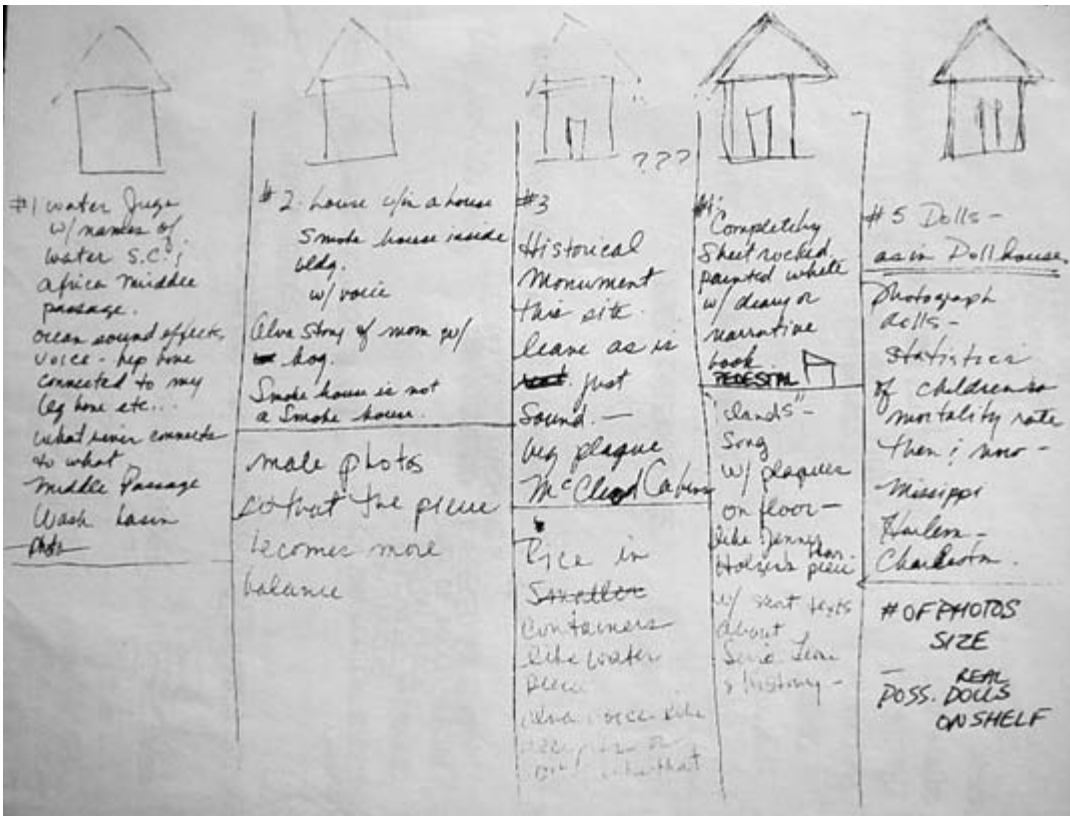 #1 water Jugs
w/ names of
water S.C. ;
africa middle
passage.
ocean sound effects,
voice - hip bone
connected to my
leg bone etc...
what river connects
to what
middle Passage
Wash basin
photo
#2. house w/in a house
Smoke house inside
bldg.
w/ voice
Alva Story of mom w/
hog.
Smoke house is not
a Smoke house.
male photos
so that the piece
becomes more
balance
???
#3
Historical
Monument
this site.
leave as is
just
Sound. —
big plaque
McCleod Cabins
Rice in
Smaller
Containers
like water
piece
Alva voice like
that
#4.
Completely
Sheet rocked
painted white
w/ deary or
narrative
book
PEDESTAL
"lands" -
Song
w/ plaques
on floor -
like Jenny
Holser's piece
w/ text
about
History -
#5 Dolls -
as in Doll house
photograph
dolls -
Statistics
of children's
mortality rate
then ; now -
Missippi
Harlem -
Charleston.
# OF PHOTOS
SIZE
— REAL
POSS. DOLLS
ON SHELF